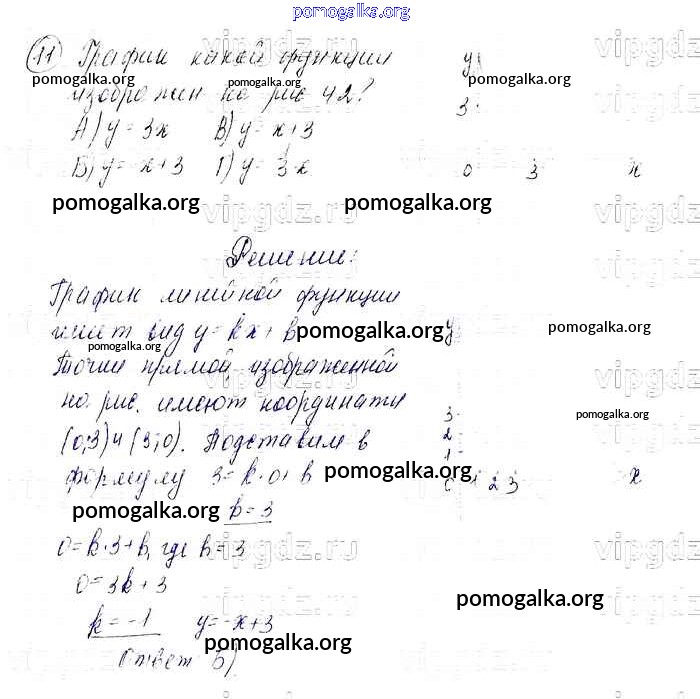 pomogalka.org
11 График какой функции
изображен на рис 42?
А) y = 3x В) y = x+3
Б) y = -x+3 Г) y = 3·x
y
3
0 3 x
pomogalka.org pomogalka.org pomogalka.org
pomogalka.org pomogalka.org
vipgdz.ru
Решение:
График линейной функции
имеет вид y = kx + b
pomogalka.org pomogalka.org
pomogalka.org
Точки прямой, изображенной
на рис. имеют координаты
(0;3) и (3;0). Подставим в
формулу 3 = k·0 + b
b = 3
0 = k·3 + b, где b = 3
0 = 3k + 3
k = -1 y = -x+3
Ответ Б)
y
3
2
1
0 1 2 3 x
pomogalka.org
pomogalka.org
pomogalka.org
pomogalka.org
pomogalka.org